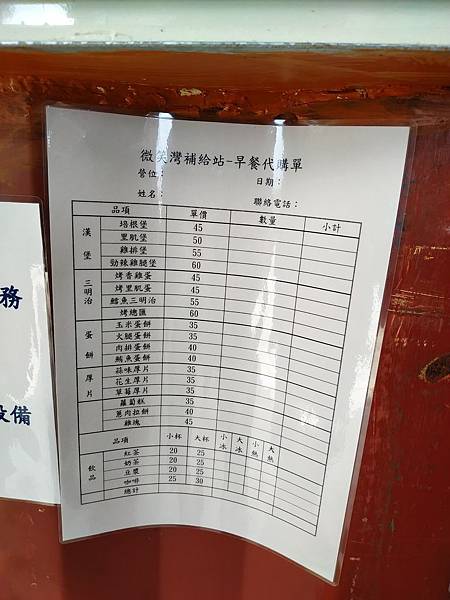 微笑灣補給站-早餐代購單
營位： 日期：
姓名： 聯絡電話：
品項 單價 數量 小計
漢堡
培根堡 45
里肌堡 50
雞排堡 55
勁辣雞腿堡 60
三明治
烤香雞蛋 45
烤里肌蛋 45
鱈魚三明治 55
烤總匯 60
蛋餅
玉米蛋餅 35
火腿蛋餅 35
肉排蛋餅 40
鮪魚蛋餅 40
厚片
蒜味厚片 35
花生厚片 35
草莓厚片 35
蘿蔔糕 35
蔥肉拉餅 40
雞塊 45
品項 小杯 大杯 小冰 大冰 小熱 大熱
飲品
紅茶 20 25
奶茶 20 25
豆漿 20 25
咖啡 25 30
總計
務
設備